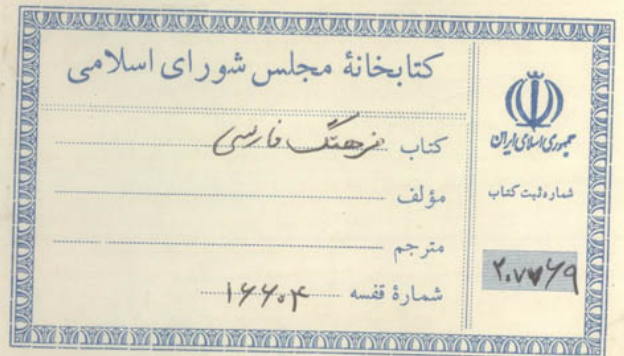 کتابخانهٔ مجلس شورای اسلامی
کتاب فرهنگ فارسی
مؤلف
مترجم
شمارهٔ قفسه ۱۶۶۰۴
جمهوری اسلامی ایران
شماره ثبت کتاب
۲۰۷۷۶۹